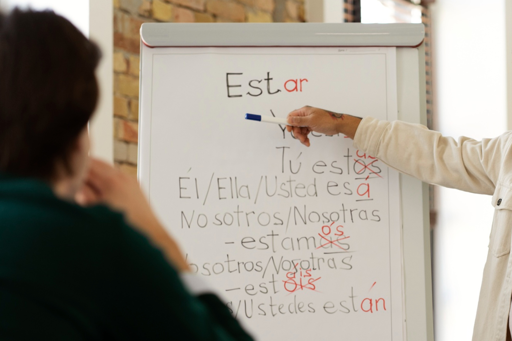 Estar
Tú estás
Él/Ella/Usted está
Nosotros/Nosotras
- estamos
Nosotros/Nosotras
- estáis
/Ustedes están